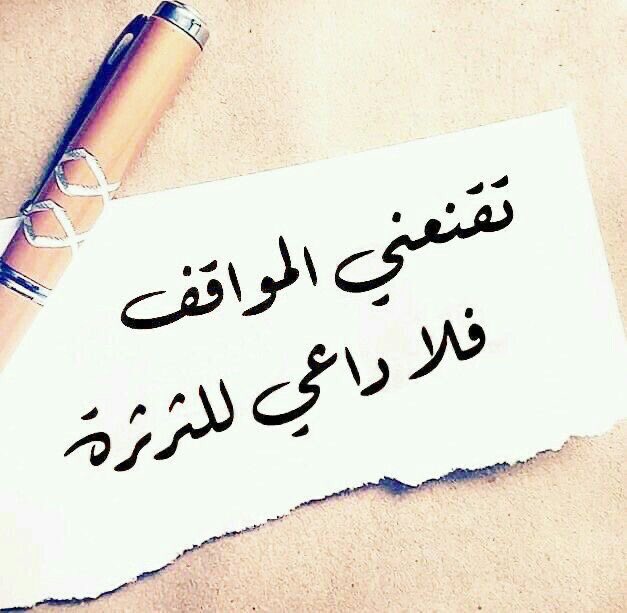 تقنعني المواقف
فلا داعي للثرثرة